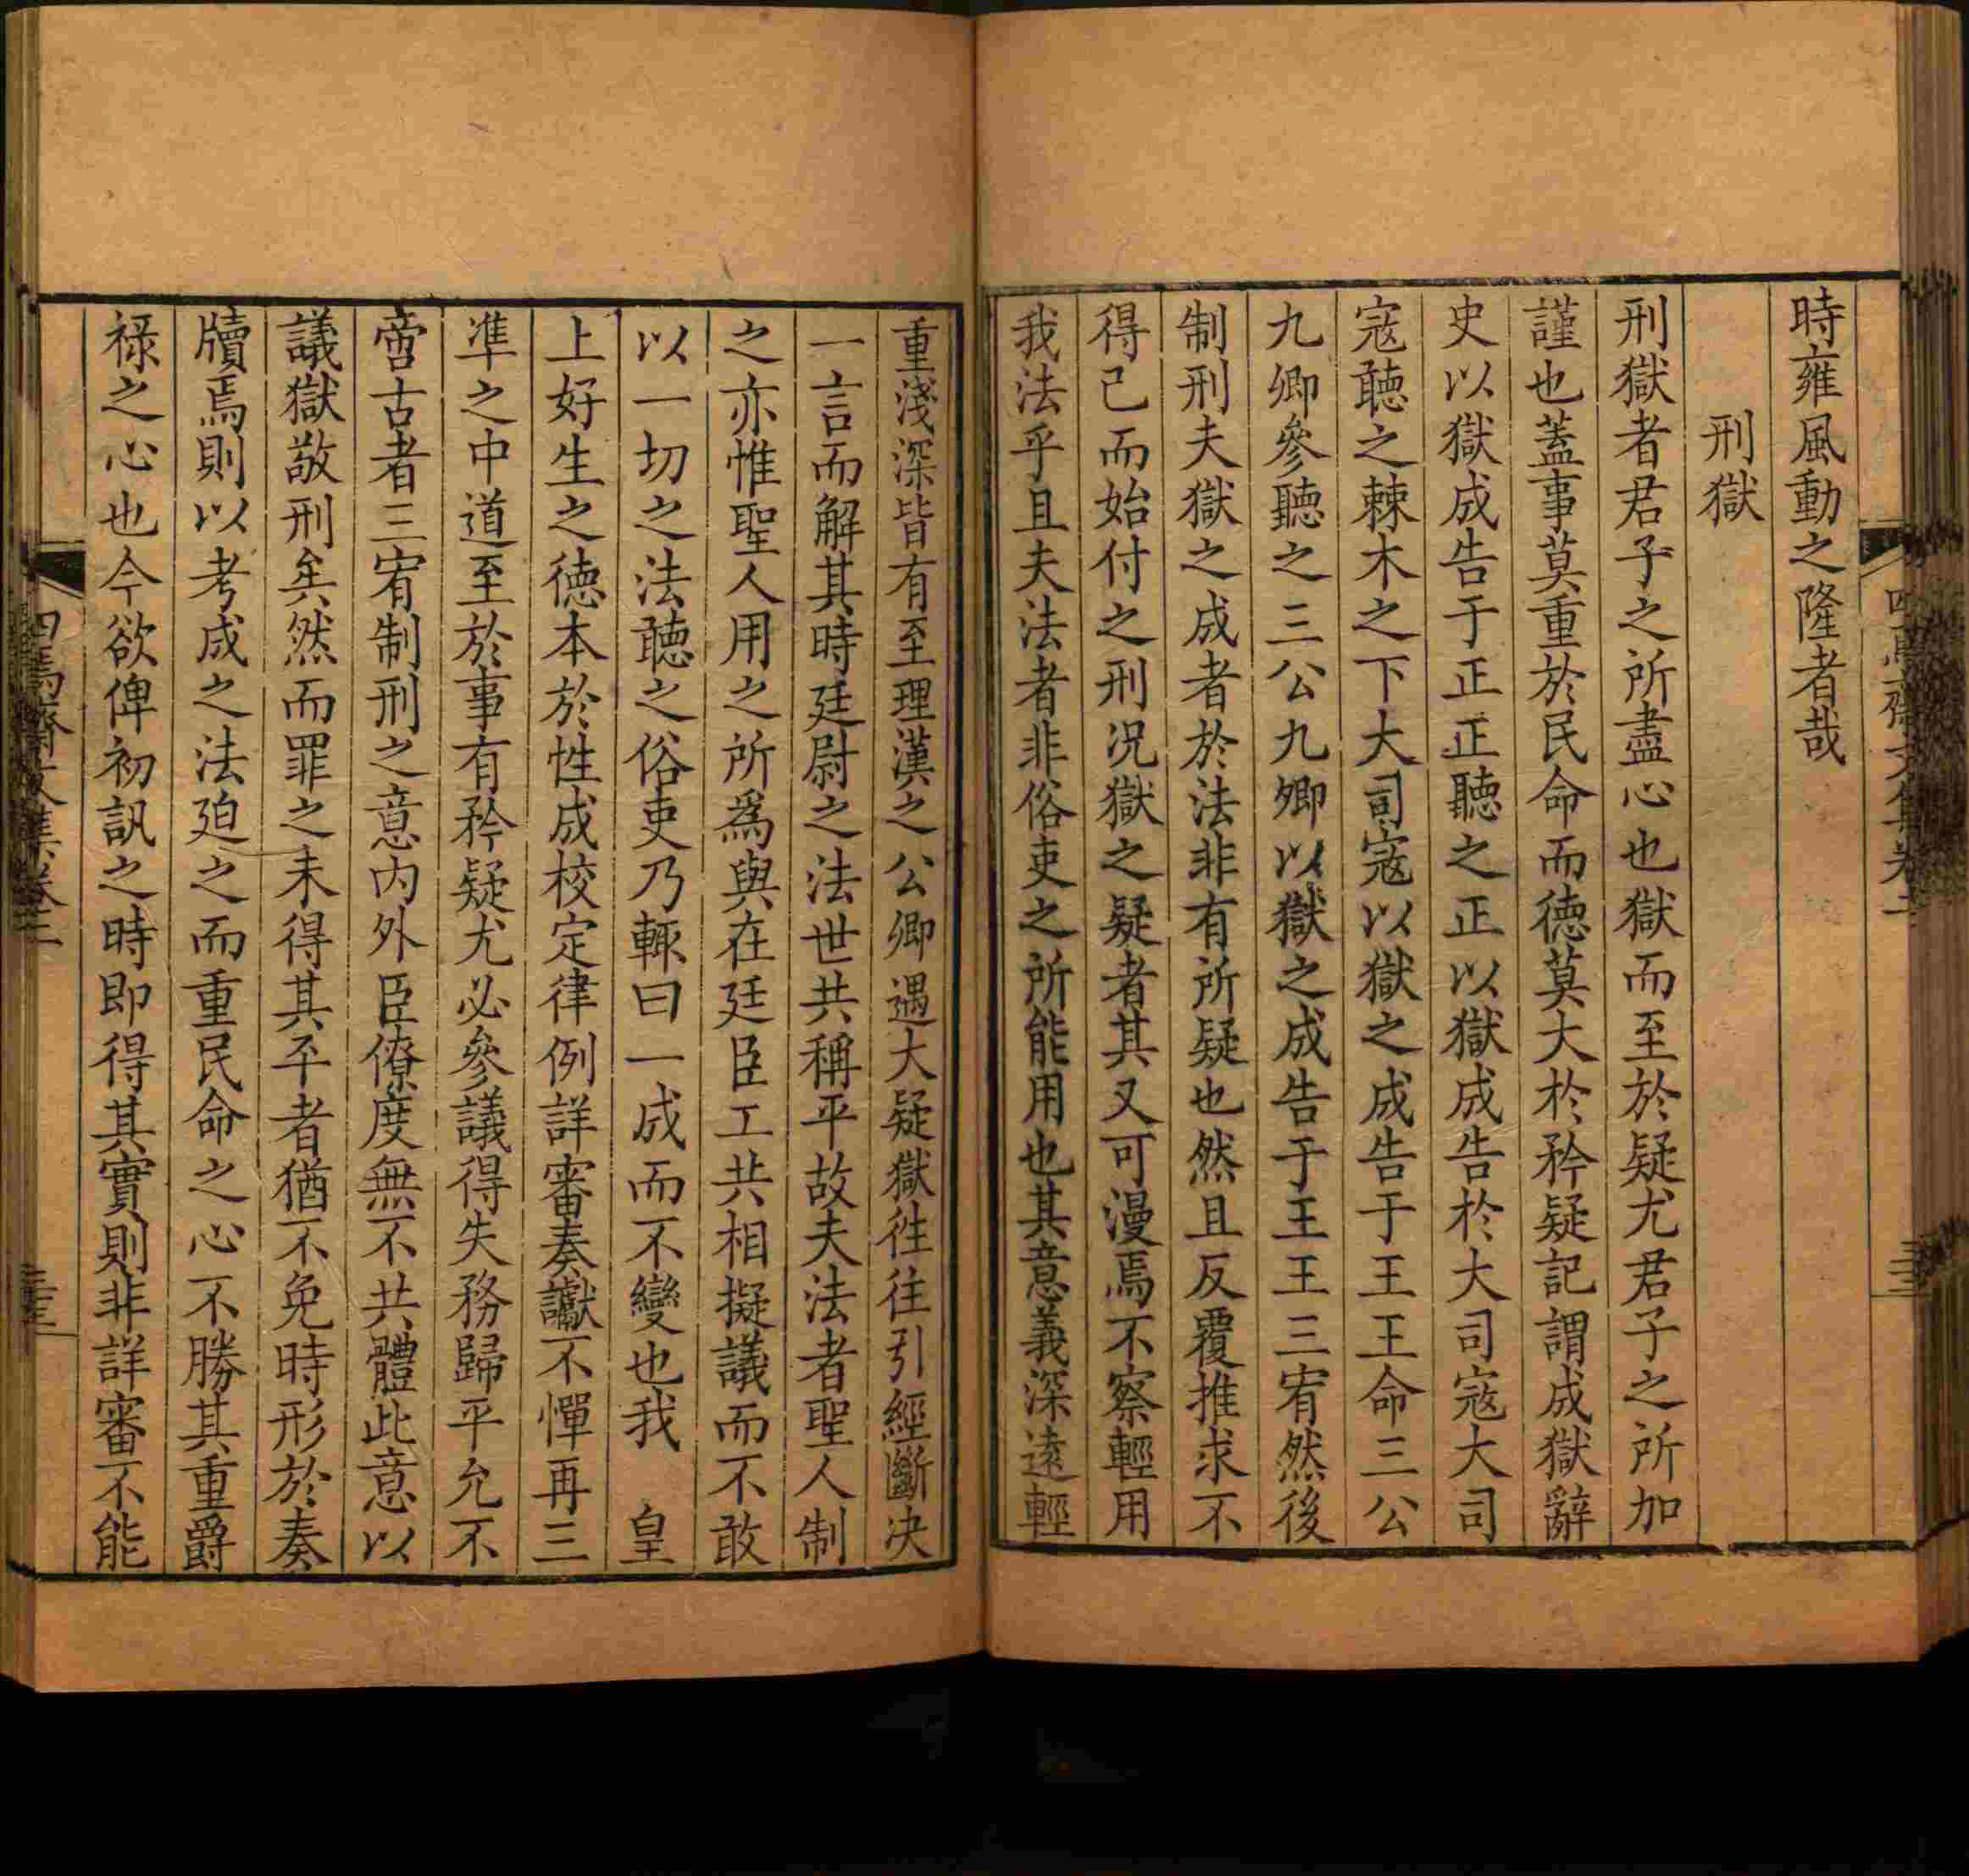 時雍風動之隆者哉
刑獄
刑獄者君子之所盡心也獄而至於疑尤君子之所加
謹也蓋事莫重於民命而德莫大於矜疑記謂成獄辭
史以獄成告于正正聽之正以獄成告於大司寇大司
寇聽之棘木之下大司寇以獄之成告于王王命三公
九卿參聽之三公九卿以獄之成告于王王三宥然後
制刑夫獄之成者於法非有所疑也然且反覆推求不
得已而始付之刑况獄之疑者其又可漫焉不察輕用
我法乎且夫法者非俗吏之所能用也其意義深遠輕
重淺深皆有至理漢之公卿遇大疑獄徃徃引經斷决
一言而解其時廷尉之法世共稱平故夫法者聖人制
之亦惟聖人用之所爲與在廷臣工共相擬議而不敢
以一切之法聽之俗吏乃輒曰一成而不變也我 皇
上好生之德本於性成校定律例詳審奏讞不憚再三
準之中道至於事有矜疑尤必參議得失務歸平允不
啻古者三宥制刑之意内外臣僚度無不共體此意以
議獄敬刑矣然而罪之未得其平者猶不免時形於奏
牘焉則以考成之法廹之而重民命之心不勝其重爵
祿之心也今欲俾初訊之時即得其實則非詳審不能
四焉齋文集卷二